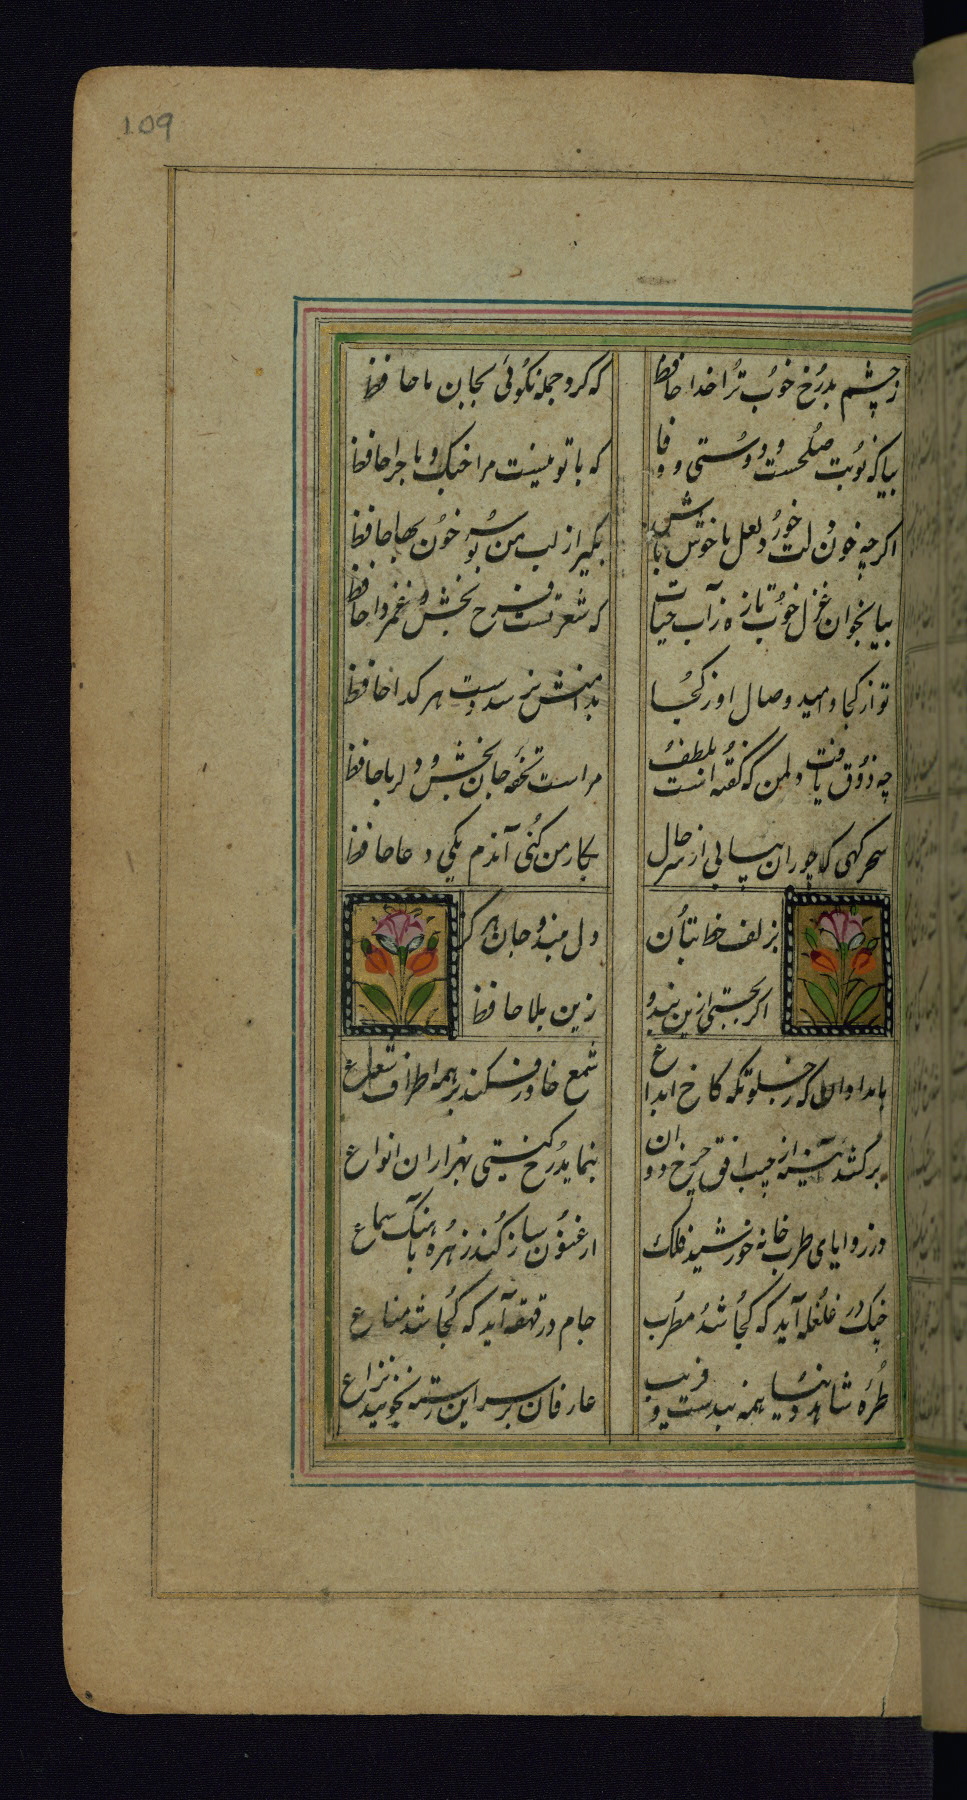 109
ز چشم بد رخ خوب ترا خدا حافظ
که کرد جمله نکوئی بجای ما حافظ
بیا که نوبت صلحست و دوستی و وفا
که با تو نیست مرا جنک و ماجرا حافظ
اکر چه خون دلت خورد لعل ما خوش باش
بکیر از لب من بوسه خون بها حافظ
بیا بخوان غزل خوب تازه ز آب حیات
که شعر تست فرح بخش و غمزدا حافظ
تو از کجا و امید وصال او ز کجا
بدامنش نرسد دست هر کدا حافظ
چه ذوق یافت دلمن که کفته است بلطف
مراست تحفه جان بخش و دلربا حافظ
سحر کهی که
بکار من کنی آندم یکی دعا حافظ
بزلف خال بتان
دل مبند و جان هر کز
اکر بجستی ازین بند و
زین بلا حافظ
بامدادان که ز خلوتکه کاخ ابداع
شمع خاور فکند بر همه اطراف شعاع
برکشد آئینه از جیب افق چرخ دوان
بنماید رخ کیتی بهزاران انواع
در زوایای طرب خانه خورشید فلک
ارغنون ساز کند زهره بآهنک سماع
چنک در غلغله آید که کجا شد مطرب
جام در قهقهه آید که کجا شد مناع
طره شاهد دنیا همه بندست و فریب
عارفان بر سر این رشته نجویند نزاع